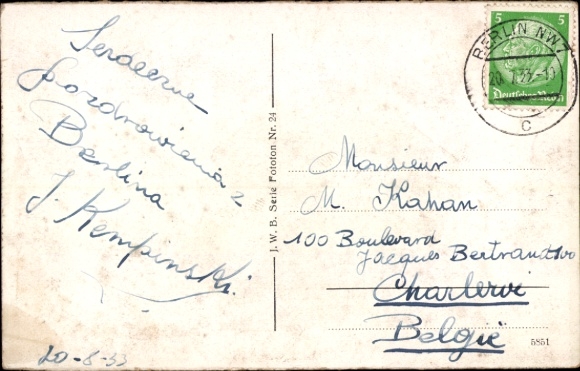 Serdeczne
pozdrowienia z
Berlina
J. Kempinski.
20-8-33
J. W. B. Serie Fototon Nr. 24
5
5
Deutsches Reich
BERLIN NW7
c
Monsieur
M. Kahan
100 Boulevard
Jacques Bertrand 100
Charleroi
België
5851